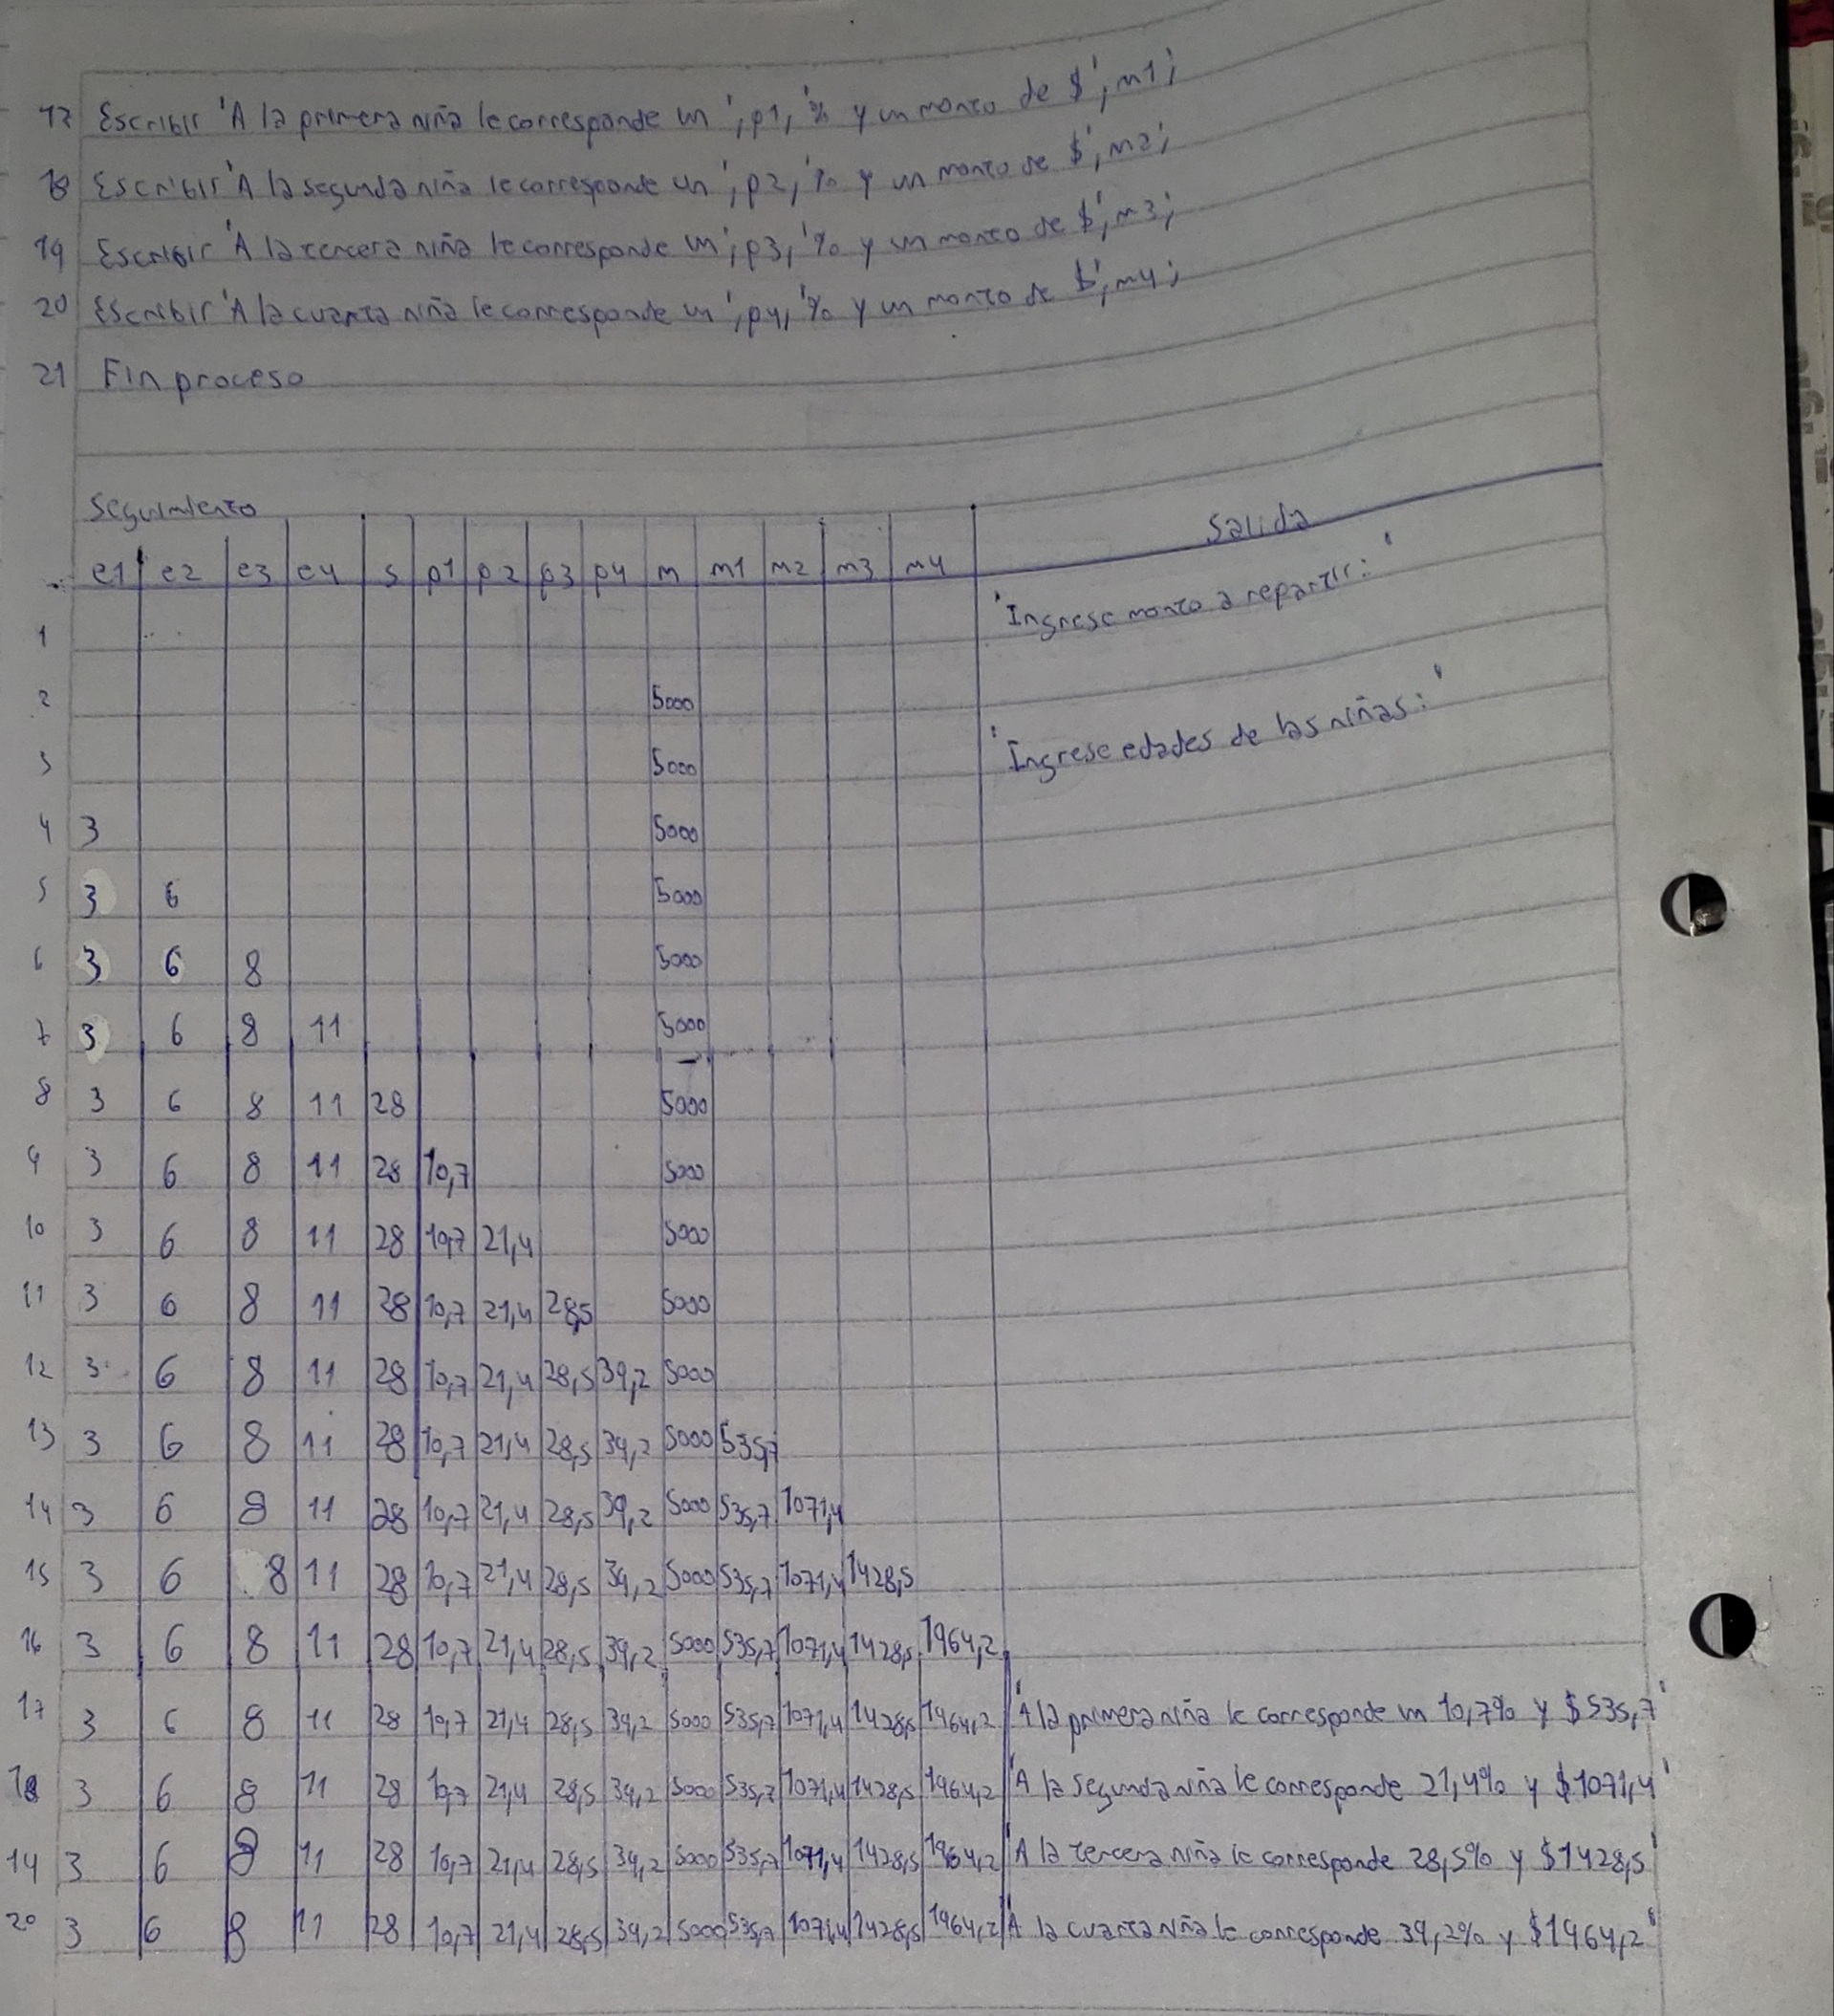 17 Escribir 'A la primera niña le corresponde un ', p1, '% y un monto de $', m1;
18 Escribir 'A la segunda niña le corresponde un ', p2, '% y un monto de $', m2;
19 Escribir 'A la tercera niña le corresponde un ', p3, '% y un monto de $', m3;
20 Escribir 'A la cuarta niña le corresponde un ', p4, '% y un monto de $', m4;
21 Fin proceso
Seguimiento
e1 e2 e3 e4 s p1 p2 p3 p4 m m1 m2 m3 m4 Salida
1 'Ingrese monto a repartir: '
2 5000
3 5000 'Ingrese edades de las niñas: '
4 3 5000
5 3 6 5000
6 3 6 8 5000
7 3 6 8 11 5000
8 3 6 8 11 28 5000
9 3 6 8 11 28 10,7 5000
10 3 6 8 11 28 10,7 21,4 5000
11 3 6 8 11 28 10,7 21,4 28,5 5000
12 3 6 8 11 28 10,7 21,4 28,5 39,2 5000
13 3 6 8 11 28 10,7 21,4 28,5 39,2 5000 535,7
14 3 6 8 11 28 10,7 21,4 28,5 39,2 5000 535,7 1071,4
15 3 6 8 11 28 10,7 21,4 28,5 39,2 5000 535,7 1071,4 1428,5
16 3 6 8 11 28 10,7 21,4 28,5 39,2 5000 535,7 1071,4 1428,5 1964,2
17 3 6 8 11 28 10,7 21,4 28,5 39,2 5000 535,7 1071,4 1428,5 1964,2 'A la primera niña le corresponde un 10,7% y $535,7'
18 3 6 8 11 28 10,7 21,4 28,5 39,2 5000 535,7 1071,4 1428,5 1964,2 'A la segunda niña le corresponde 21,4% y $1071,4'
19 3 6 8 11 28 10,7 21,4 28,5 39,2 5000 535,7 1071,4 1428,5 1964,2 'A la tercera niña le corresponde 28,5% y $1428,5'
20 3 6 8 11 28 10,7 21,4 28,5 39,2 5000 535,7 1071,4 1428,5 1964,2 'A la cuarta niña le corresponde 39,2% y $1964,2'